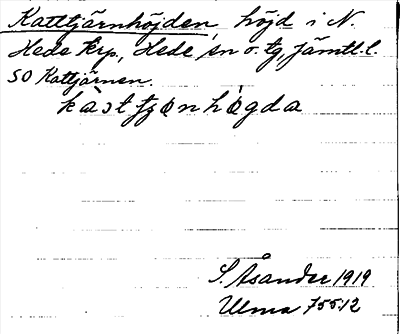 Kattjärnhöjden, höjd i N.
Hede krp, Hede sn o. tg, Jämtl. l.
SO Kattjärnen.
S. Åsander 1919
Ulma 755:12